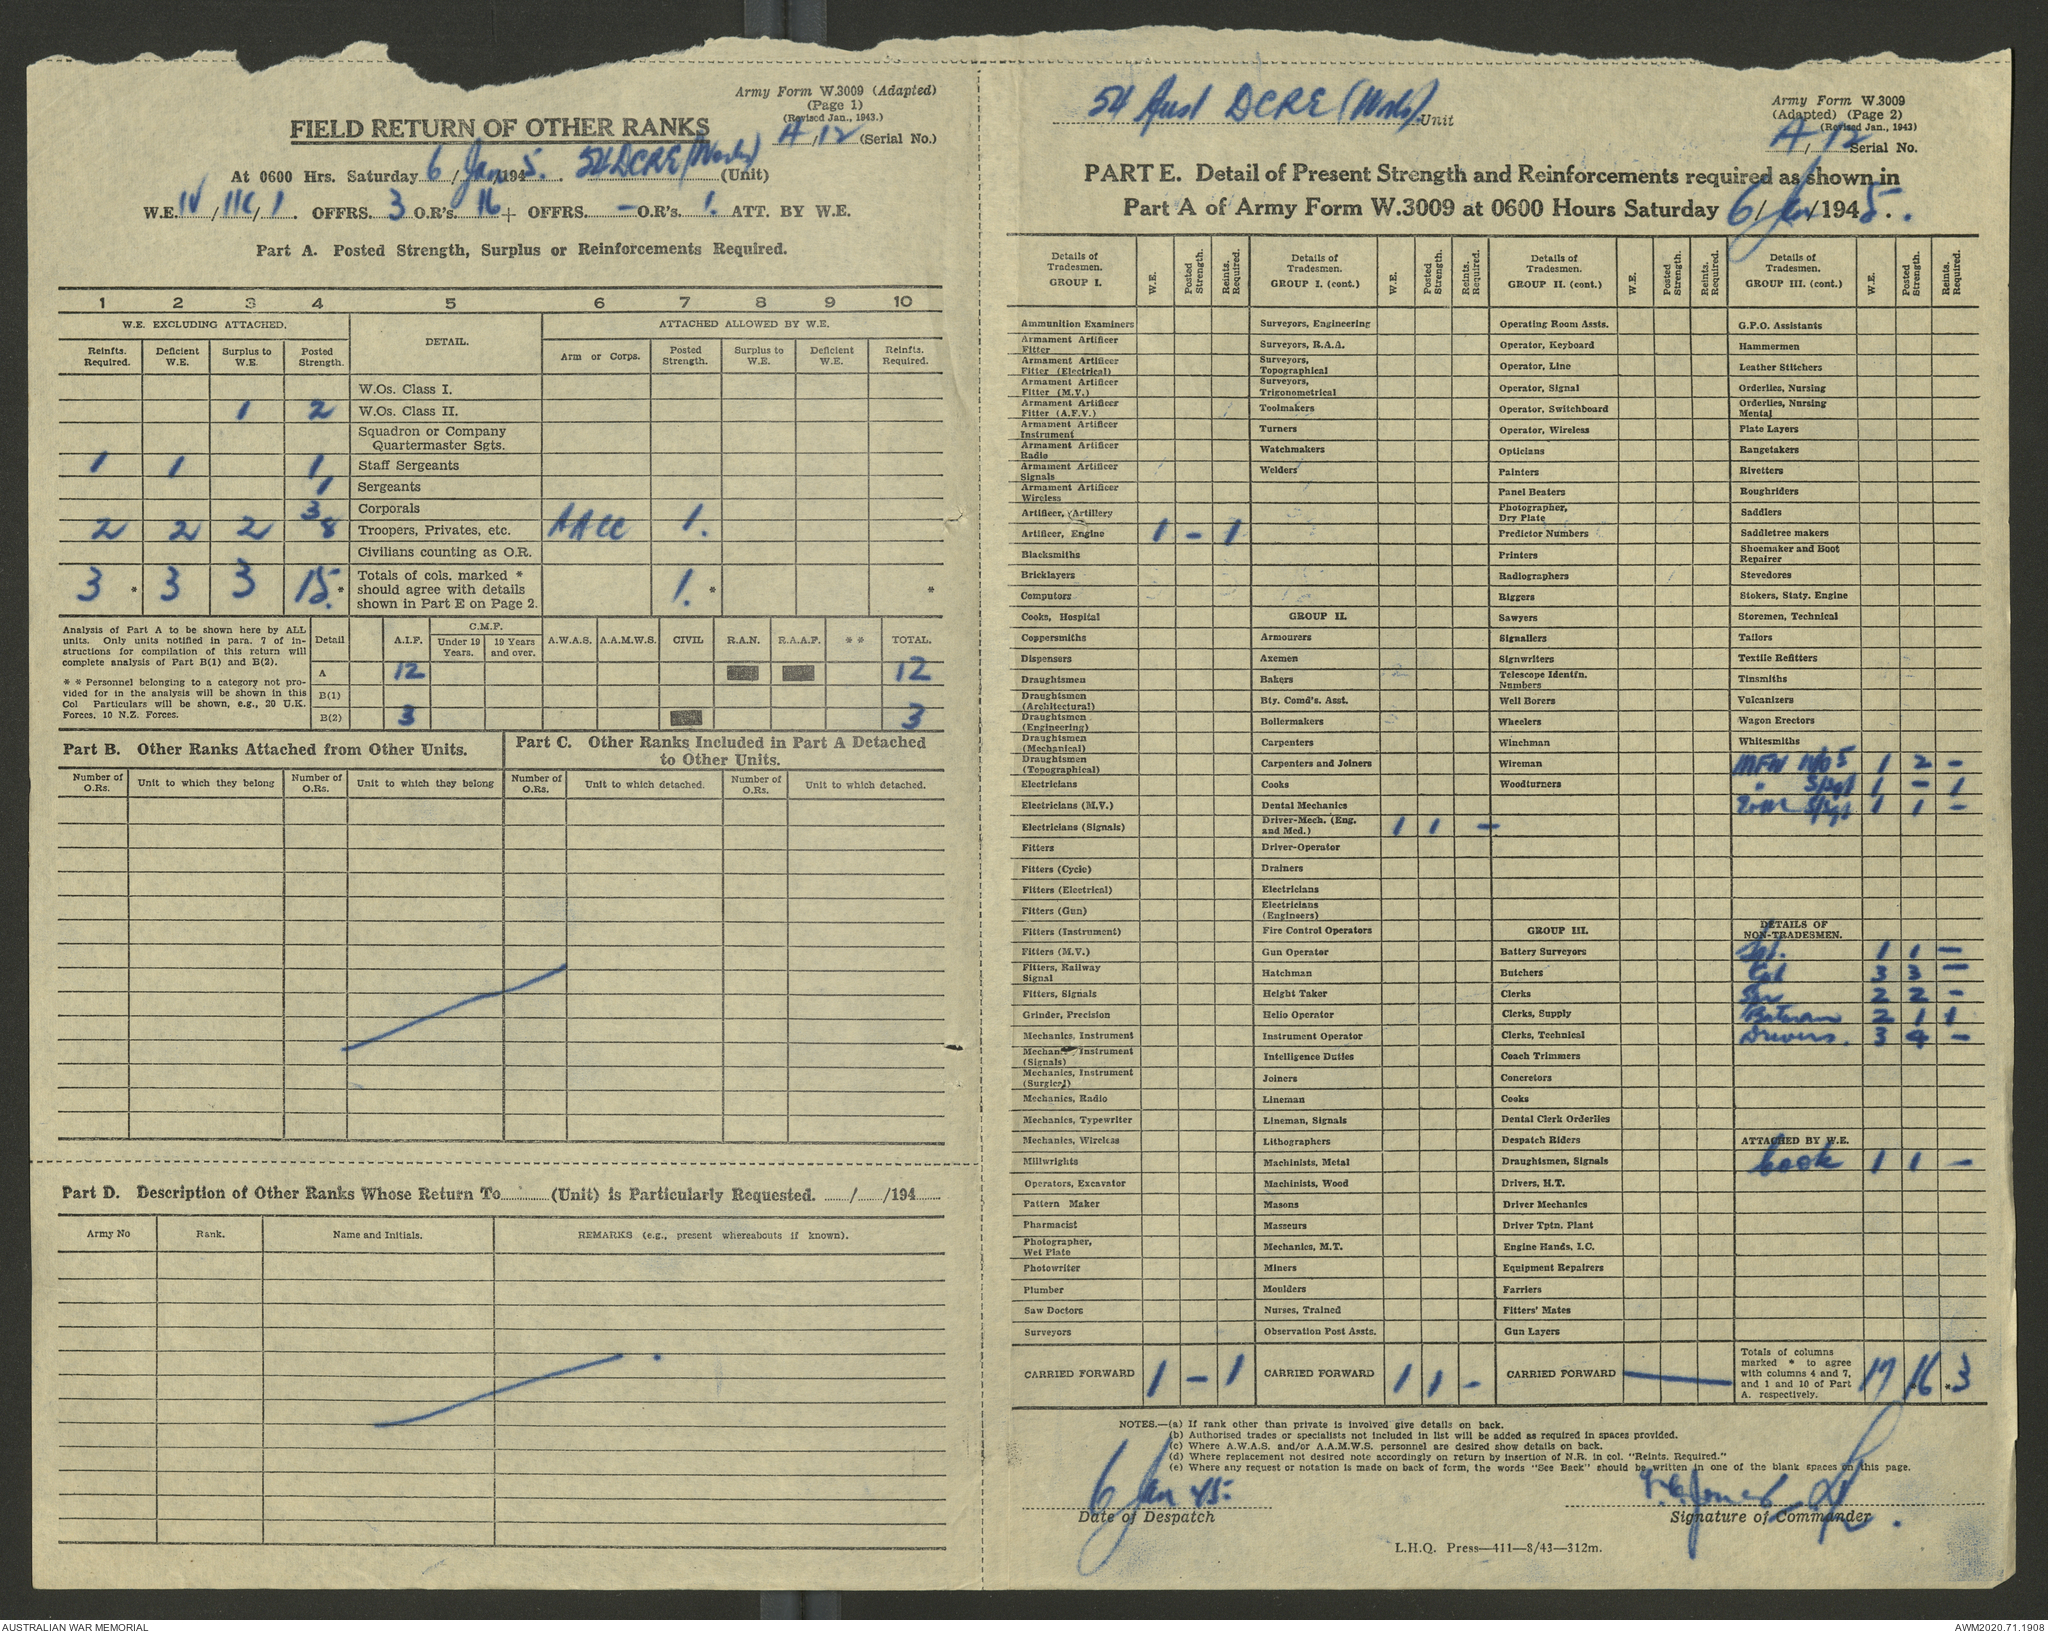 Army Form W.3009 (Adapted)
(Page 1)
(Revised Jan., 1943.)
FIELD RETURN OF OTHER RANKS
A/12 (Serial No.)
At 0600 Hrs. Saturday 6/Jan/1945. 54 DCRE (Works) (Unit)
W.E. IV/11C/1. OFFRS. 3 O.R's. 16 + OFFRS. - O.R's. 1. ATT. BY W.E.
Part A. Posted Strength, Surplus or Reinforcements Required.
1 2 3 4 5 6 7 8 9 10
W.E. EXCLUDING ATTACHED. DETAIL. ATTACHED ALLOWED BY W.E.
Reinfts. Required. Deficient W.E. Surplus to W.E. Posted Strength. Arm or Corps. Posted Strength. Surplus to W.E. Deficient W.E. Reinfts. Required.
W.Os. Class I.
1 2 W.Os. Class II.
Squadron or Company
Quartermaster Sgts.
1 1 1 Staff Sergeants
1 Sergeants
3 Corporals
2 2 2 8 Troopers, Privates, etc. AACC 1.
Civilians counting as O.R.
3 * 3 3 15. * Totals of cols. marked * should agree with details shown in Part E on Page 2. 1. * *
Analysis of Part A to be shown here by ALL
units. Only units notified in para. 7 of in-
structions for compilation of this return will
complete analysis of Part B(1) and B(2).
* * Personnel belonging to a category not pro-
vided for in the analysis will be shown in this
Col Particulars will be shown, e.g., 20 U.K.
Forces, 10 N.Z. Forces.
Detail A.I.F. C.M.F. Under 19 Years. 19 Years and over. A.W.A.S. A.A.M.W.S. CIVIL R.A.N. R.A.A.F. * * TOTAL.
A 12 12
B(1)
B(2) 3 3
Part B. Other Ranks Attached from Other Units.
Part C. Other Ranks Included in Part A Detached
to Other Units.
Number of O.Rs. Unit to which they belong Number of O.Rs. Unit to which they belong Number of O.Rs. Unit to which detached. Number of O.Rs. Unit to which detached.
Part D. Description of Other Ranks Whose Return To............(Unit) is Particularly Requested. ....../....../194......
Army No Rank. Name and Initials. REMARKS (e.g., present whereabouts if known).
54 Aust DCRE (Works). Unit
Army Form W.3009
(Adapted) (Page 2)
(Revised Jan., 1943)
A/12 Serial No.
PART E. Detail of Present Strength and Reinforcements required as shown in
Part A of Army Form W.3009 at 0600 Hours Saturday 6/Jan/1945.
Details of Tradesmen. GROUP I. W.E. Posted Strength. Reints. Required.
Ammunition Examiners
Armament Artificer Fitter
Armament Artificer Fitter (Electrical)
Armament Artificer Fitter (M.V.)
Armament Artificer Fitter (A.F.V.)
Armament Artificer Instrument
Armament Artificer Radio
Armament Artificer Signals
Armament Artificer Wireless
Artificer, Artillery
Artificer, Engine 1 - 1
Blacksmiths
Bricklayers
Computors
Cooks, Hospital
Coppersmiths
Dispensers
Draughtsmen
Draughtsmen (Architectural)
Draughtsmen (Engineering)
Draughtsmen (Mechanical)
Draughtsmen (Topographical)
Electricians
Electricians (M.V.)
Electricians (Signals)
Fitters
Fitters (Cycle)
Fitters (Electrical)
Fitters (Gun)
Fitters (Instrument)
Fitters (M.V.)
Fitters, Railway Signal
Fitters, Signals
Grinder, Precision
Mechanics, Instrument
Mechanics, Instrument (Signals)
Mechanics, Instrument (Surgical)
Mechanics, Radio
Mechanics, Typewriter
Mechanics, Wireless
Millwrights
Operators, Excavator
Pattern Maker
Pharmacist
Photographer, Wet Plate
Photowriter
Plumber
Saw Doctors
Surveyors
CARRIED FORWARD 1 - 1
Details of Tradesmen. GROUP I. (cont.) W.E. Posted Strength. Reints. Required.
Surveyors, Engineering
Surveyors, R.A.A.
Surveyors, Topographical
Surveyors, Trigonometrical
Toolmakers
Turners
Watchmakers
Welders
GROUP II.
Armourers
Axemen
Bakers
Bty. Comd's. Asst.
Boilermakers
Carpenters
Carpenters and Joiners
Cooks
Dental Mechanics
Driver-Mech. (Eng. and Med.) 1 1 -
Driver-Operator
Drainers
Electricians
Electricians (Engineers)
Fire Control Operators
Gun Operator
Hatchman
Height Taker
Helio Operator
Instrument Operator
Intelligence Duties
Joiners
Lineman
Lineman, Signals
Lithographers
Machinists, Metal
Machinists, Wood
Masons
Masseurs
Mechanics, M.T.
Miners
Moulders
Nurses, Trained
Observation Post Assts.
CARRIED FORWARD 1 1 -
Details of Tradesmen. GROUP II. (cont.) W.E. Posted Strength. Reints. Required.
Operating Room Assts.
Operator, Keyboard
Operator, Line
Operator, Signal
Operator, Switchboard
Operator, Wireless
Opticians
Painters
Panel Beaters
Photographer, Dry Plate
Predictor Numbers
Printers
Radiographers
Riggers
Sawyers
Signallers
Signwriters
Telescope Identfn. Numbers
Well Borers
Wheelers
Winchman
Wireman
Woodturners
GROUP III.
Battery Surveyors
Butchers
Clerks
Clerks, Supply
Clerks, Technical
Coach Trimmers
Concretors
Cooks
Dental Clerk Orderlies
Despatch Riders
Draughtsmen, Signals
Drivers, H.T.
Driver Mechanics
Driver Tptn. Plant
Engine Hands, I.C.
Equipment Repairers
Farriers
Fitters' Mates
Gun Layers
CARRIED FORWARD
Details of Tradesmen. GROUP III. (cont.) W.E. Posted Strength. Reints. Required.
G.P.O. Assistants
Hammermen
Leather Stitchers
Orderlies, Nursing
Orderlies, Nursing Mental
Plate Layers
Rangetakers
Rivetters
Roughriders
Saddlers
Saddletree makers
Shoemaker and Boot Repairer
Stevedores
Stokers, Staty. Engine
Storemen, Technical
Tailors
Textile Refitters
Tinsmiths
Vulcanizers
Wagon Erectors
Whitesmiths
MFW 1 2 -
" S/Sgt 1 - 1
S/Sgt 1 1 -
DETAILS OF NON-TRADESMEN.
Sgt. 1 1 -
Cpl 3 3 -
Spr 2 2 -
Batman 2 1 1
Drivers. 3 4 -
ATTACHED BY W.E.
Cook 1 1 -
Totals of columns marked * to agree with columns 4 and 7, and 1 and 10 of Part A. respectively. 17 *16 *3
NOTES.—(a) If rank other than private is involved give details on back.
(b) Authorised trades or specialists not included in list will be added as required in spaces provided.
(c) Where A.W.A.S. and/or A.A.M.W.S. personnel are desired show details on back.
(d) Where replacement not desired note accordingly on return by insertion of N.R. in col. "Reints. Required."
(e) Where any request or notation is made on back of form, the words "See Back" should be written in one of the blank spaces on this page.
6 Jan 45.
Date of Despatch
Jones
Signature of Commander
L.H.Q. Press—411—8/43—312m.
AUSTRALIAN WAR MEMORIAL
AWM2020.71.1908